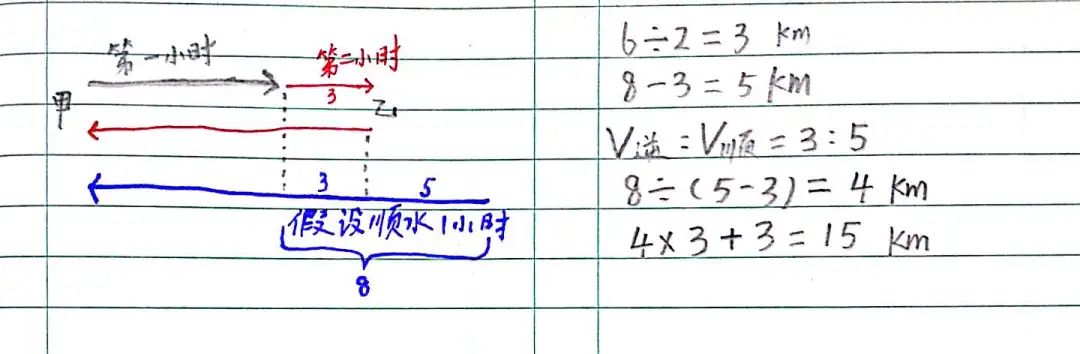 第一小时
第二小时
3
甲
乙
3 5
假设顺水1小时
8
6÷2=3 km
8-3=5 km
V逆:V顺=3:5
8÷(5-3)=4 km
4×3+3=15 km